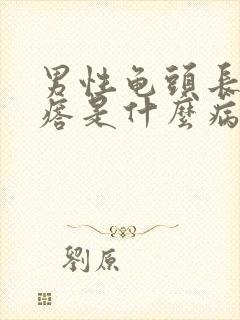 男性龟頭長
痞是什麼病
劉原